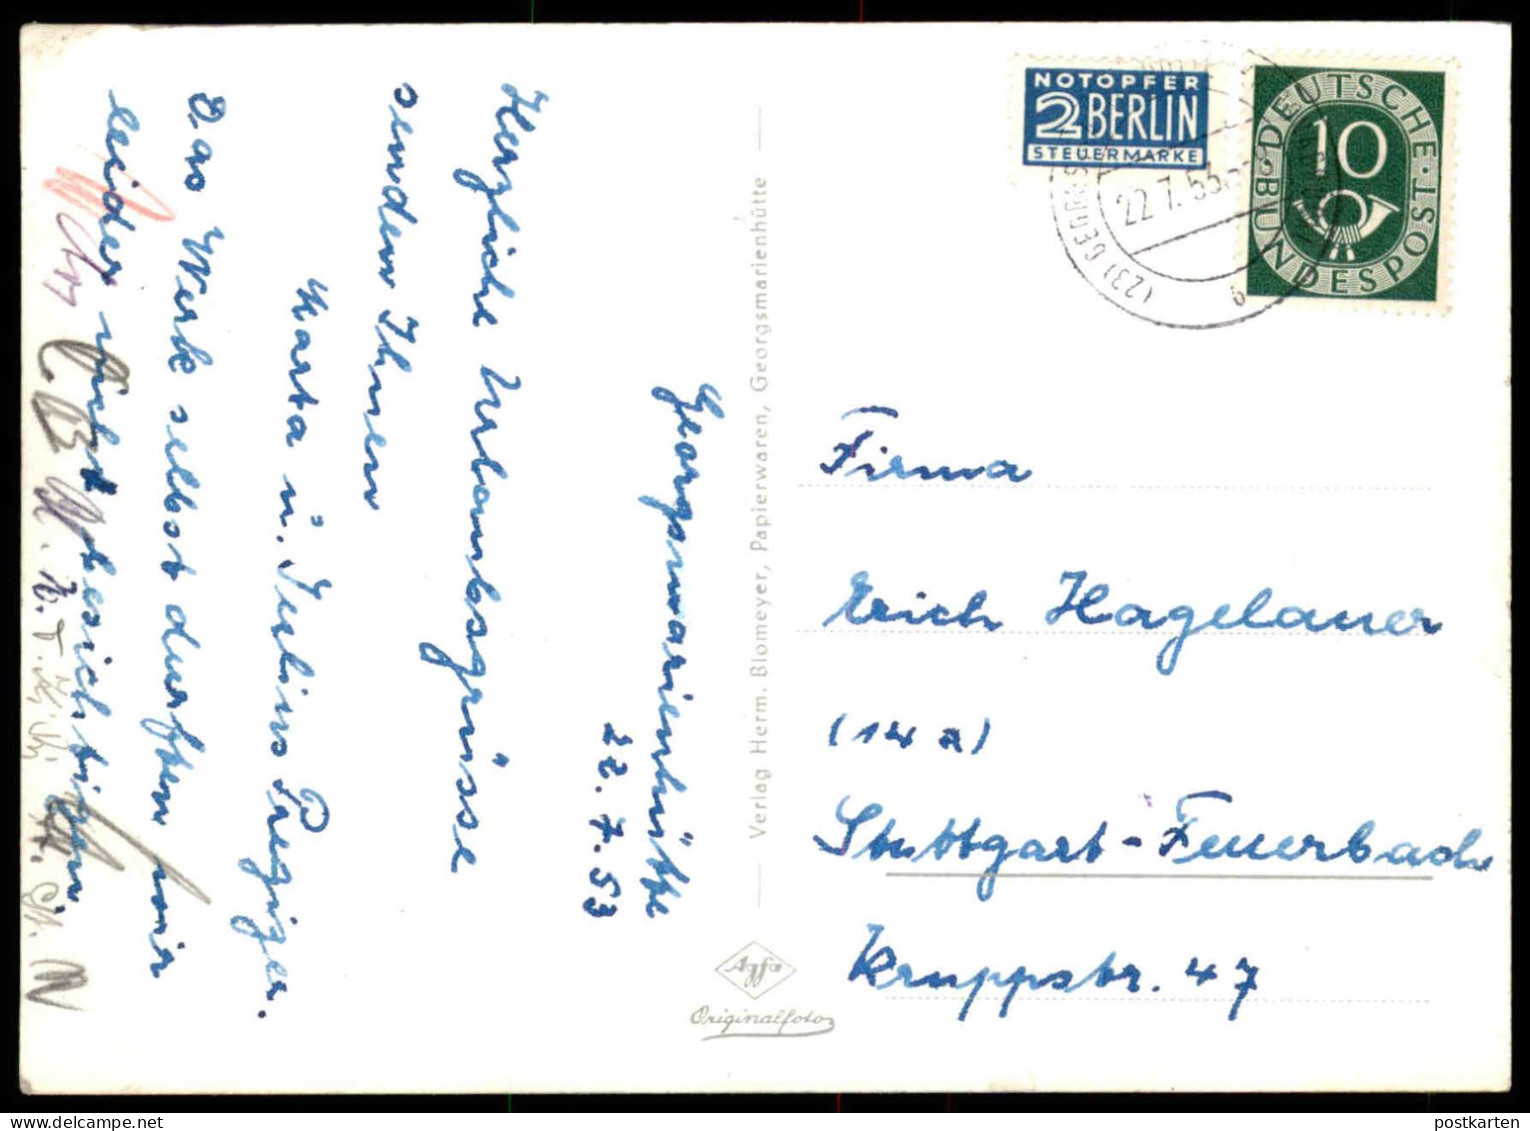 Georgsmarienhütte
22.7.53
Herzliche Urlaubsgrüsse
senden Ihnen
Marta u. Julius Pregizer.
Das Werk selbst durften wir
leider nicht besichtigen.
Verlag Herm. Blomeyer, Papierwaren, Georgsmarienhütte
Agfa
Originalfoto
NOTOPFER
2 BERLIN
STEUERMARKE
DEUTSCHE
BUNDESPOST
10
(23) GEORGS
22.7.53
b
Firma
Erich Hagelauer
(14a)
Stuttgart-Feuerbach
Kruppstr. 47
postkarten